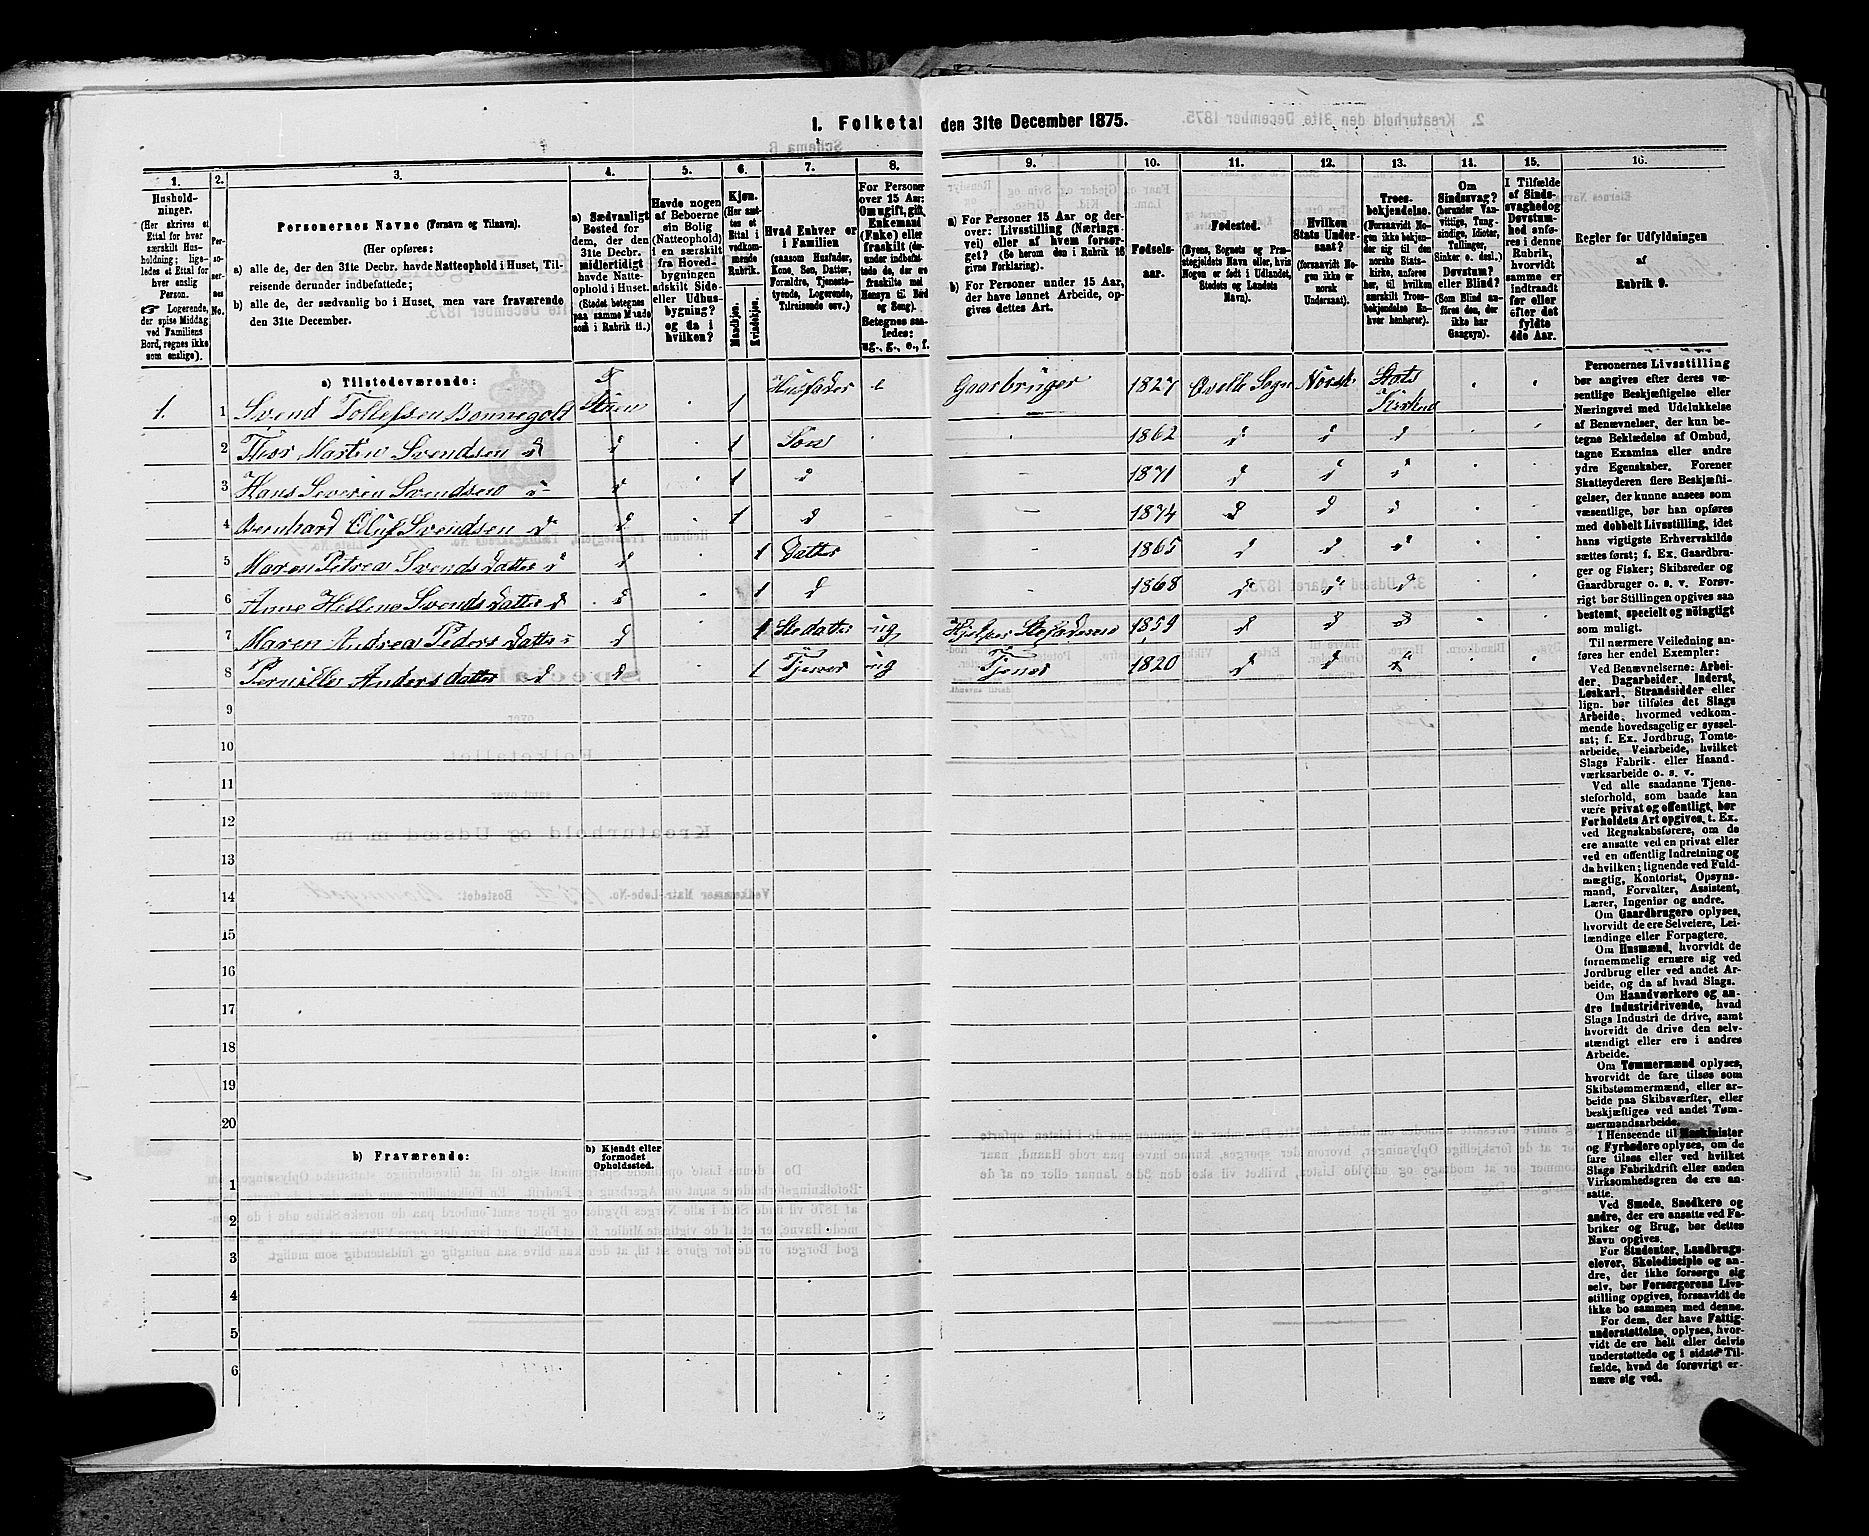 1. Folketal den 31te December 1875.
1. 2. 3. 4. 5. 6. 7. 8. 9. 10. 11. 12. 13. 14. 15. 16.
Hushold-
ninger.
(Her skrives et
Ettal for hver
særskilt Hus-
holdning; lige-
ledes et Ettal for
hver enslig
Person.
☞ Logerende,
der spise Middag
ved Familiens
Bord, regnes ikke
som enslige).
Per-
so-
ner-
nes
No.
Personernes Navne (Fornavn og Tilnavn).
(Her opføres:
a) alle de, der den 31te Decbr. havde Natteophold i Huset, Til-
reisende derunder indbefattede;
b) alle de, der sædvanlig bo i Huset, men vare fraværende
den 31te December.
a) Sædvanligt
Bosted for
dem, der den
31te Decbr.
midlertidigt
havde Natte-
ophold i Huset.
(Stedet betegnes
paa samme Maade
som i Rubrik 11.)
Havde nogen
af Beboerne
sin Bolig
(Natteophold)
i en særskilt
fra Hoved-
bygningen
adskilt Side-
eller Udhus-
bygning?
og da i
hvilken?
Kjøn.
(Her sæt-
tes et
Ettal i
vedkom-
mende
Rubrik.
Mandkjøn.
Kvindekjøn.
Hvad Enhver er
i Familien
(saasom Husfader,
Kone, Søn, Datter,
Forældre, Tjeneste-
tyende, Logerende,
Tilreisende osv.)
For Personer
over 15 Aar:
Om ugift, gift,
Enkemand
(Enke) eller
fraskilt (der-
under indbefat-
tede de, der ere
fraskilte med
Hensyn til Bord
og Seng).
Betegnes saa-
ledes:
ug., g., e., f.
a) For Personer 15 Aar og der-
over: Livsstilling (Nærings-
vei) eller af hvem forsør-
get? (Se herom den i Rubrik 16
givne Forklaring).
b) For Personer under 15 Aar,
der have lønnet Arbeide, op-
gives dettes Art.
Fødsels-
aar.
Fødested.
(Byens, Sognets og Præ-
stegjeldets Navn eller, hvis
Nogen er født i Udlandet,
Stedets og Landets
Navn).
Hvilken
Stats Under-
saat?
(forsaavidt No-
gen ikke er
norsk
Undersaat).
Troes-
bekjendelse.
(Forsaavidt No-
gen ikke bekjen-
der sig til den
norske Stats-
kirke, anføres
her, til hvilken
særskilt Troes-
bekjendelse En-
hver henhører).
Om
Sindssvag?
(herunder Van-
vittige, Tung-
sindige, Idioter,
Tullinger,
Sinker o. desl.)
Døvstum?
eller Blind?
(Som Blind an-
føres den, der
ikke har
Gangsyn).
I Tilfælde
af Sinds-
svaghed og
Døvstum-
hed anfø-
res i denne
Rubrik,
hvorvidt
samme er
indtraadt
før eller
efter det
fyldte
4de Aar.
Regler for Udfyldningen
af
Rubrik 9.
a) Tilstedeværende:
1. 1 Svend Tollefsen Bonnegolt 1 Husfader e Gaarbruger 1827 Qvelle Sogn Norsk Stats Kirken
2 Thor Martin Svendsen d d 1 Søn 1862 d d d
3 Hans Severin Svendsen d d 1 d 1871 d d d
4 Bernhard Oluf Svendsen d d 1 d 1874 d d d
5 Maren Petrea Svends Datter d d 1 Datter 1865 d d d
6 Anne Hellene Svends Datter d d 1 d 1868 d d d
7 Maren Andrea Peders Datter d d 1 Stedatter ug Hjelper Stefaderen 1859 d d d
8 Pernille Anders datter d d 1 Tjener ug Tjener 1820 d d d
9
10
11
12
13
14
15
16
17
18
19
20
b) Fraværende:
b) Kjendt eller
formodet
Opholdssted.
1
2
3
4
5
6
Personernes Livsstilling
bør angives efter deres væ-
sentlige Beskjæftigelse eller
Næringsvei med Udelukkelse
af Benævnelser, der kun be-
tegne Beklædelse af Ombud,
tagne Examina eller andre
ydre Egenskaber. Forener
Skatteyderen flere Beskjæfti-
gelser, der kunne ansees som
væsentlige, bør han opføres
med dobbelt Livsstilling, idet
hans vigtigste Erhvervskilde
sættes først; f. Ex. Gaardbru-
ger og Fisker; Skibsreder og
Gaardbruger o. s. v. Forøv-
rigt bør Stillingen opgives saa
bestemt, specielt og nöiagtigt
som muligt.
Til nærmere Veiledning an-
føres her endel Exempler:
Ved Benævnelserne: Arbei-
der, Dagarbeider, Inderst,
Løskarl, Strandsidder eller
lign. bør tilføies det Slags
Arbeide, hvormed vedkom-
mende hovedsagelig er syssel-
sat; f. Ex. Jordbrug, Tomte-
arbeide, Veiarbeide, hvilket
Slags Fabrik- eller Haand-
værksarbeide o. s. v.
Ved alle saadanne Tjene-
steforhold, som baade kan
være privat og offentligt, bør
Forholdets Art opgives, t. Ex.
ved Regnskabsførere, om de
ere ansatte ved en privat eller
ved en offentlig Indretning og
da hvilken; lignende ved Fuld-
mægtig, Kontorist, Opsyns-
mand, Forvalter, Assistent,
Lærer, Ingeniør og andre.
Om Gaardbrugere oplyses,
hvorvidt de ere Selveiere, Lei-
lændinge eller Forpagtere.
Om Husmænd, hvorvidt de
fornemmelig ernære sig ved
Jordbrug eller ved andet Ar-
beide, og da af hvad Slags.
Om Haandværkere og an-
dre Industridrivende, hvad
Slags Industri de drive, samt
hvorvidt de drive den selv-
stændigt eller ere i andres
Arbeide.
Om Tømmermænd oplyses,
hvorvidt de fare tilsøs som
Skibstømmermænd, eller ar-
beide paa Skibsværfter, eller
beskjæftiges ved andet Tøm-
mermandsarbeide.
I Henseende til Maskinister
og Fyrbødere oplyses, om de
fare tilsøs eller ved hvilket
Slags Fabrikdrift eller anden
Virksomhedsgren de ere an-
satte.
Ved Smede, Snedkere og
andre, der ere ansatte ved Fa-
briker og Brug, bør dettes
Navn opgives.
For Studenter, Landbrugs-
elever, Skoledisciple og an-
dre, der ikke forsørge sig
selv, bør Forsørgerens Livs-
stilling opgives, forsaavidt de
ikke bo sammen med denne.
For dem, der have Fattig-
understøttelse, oplyses, hvor-
vidt de ere helt eller delvis
understøttede og i sidste Til-
fælde, hvad de forøvrigt er-
nære sig ved.